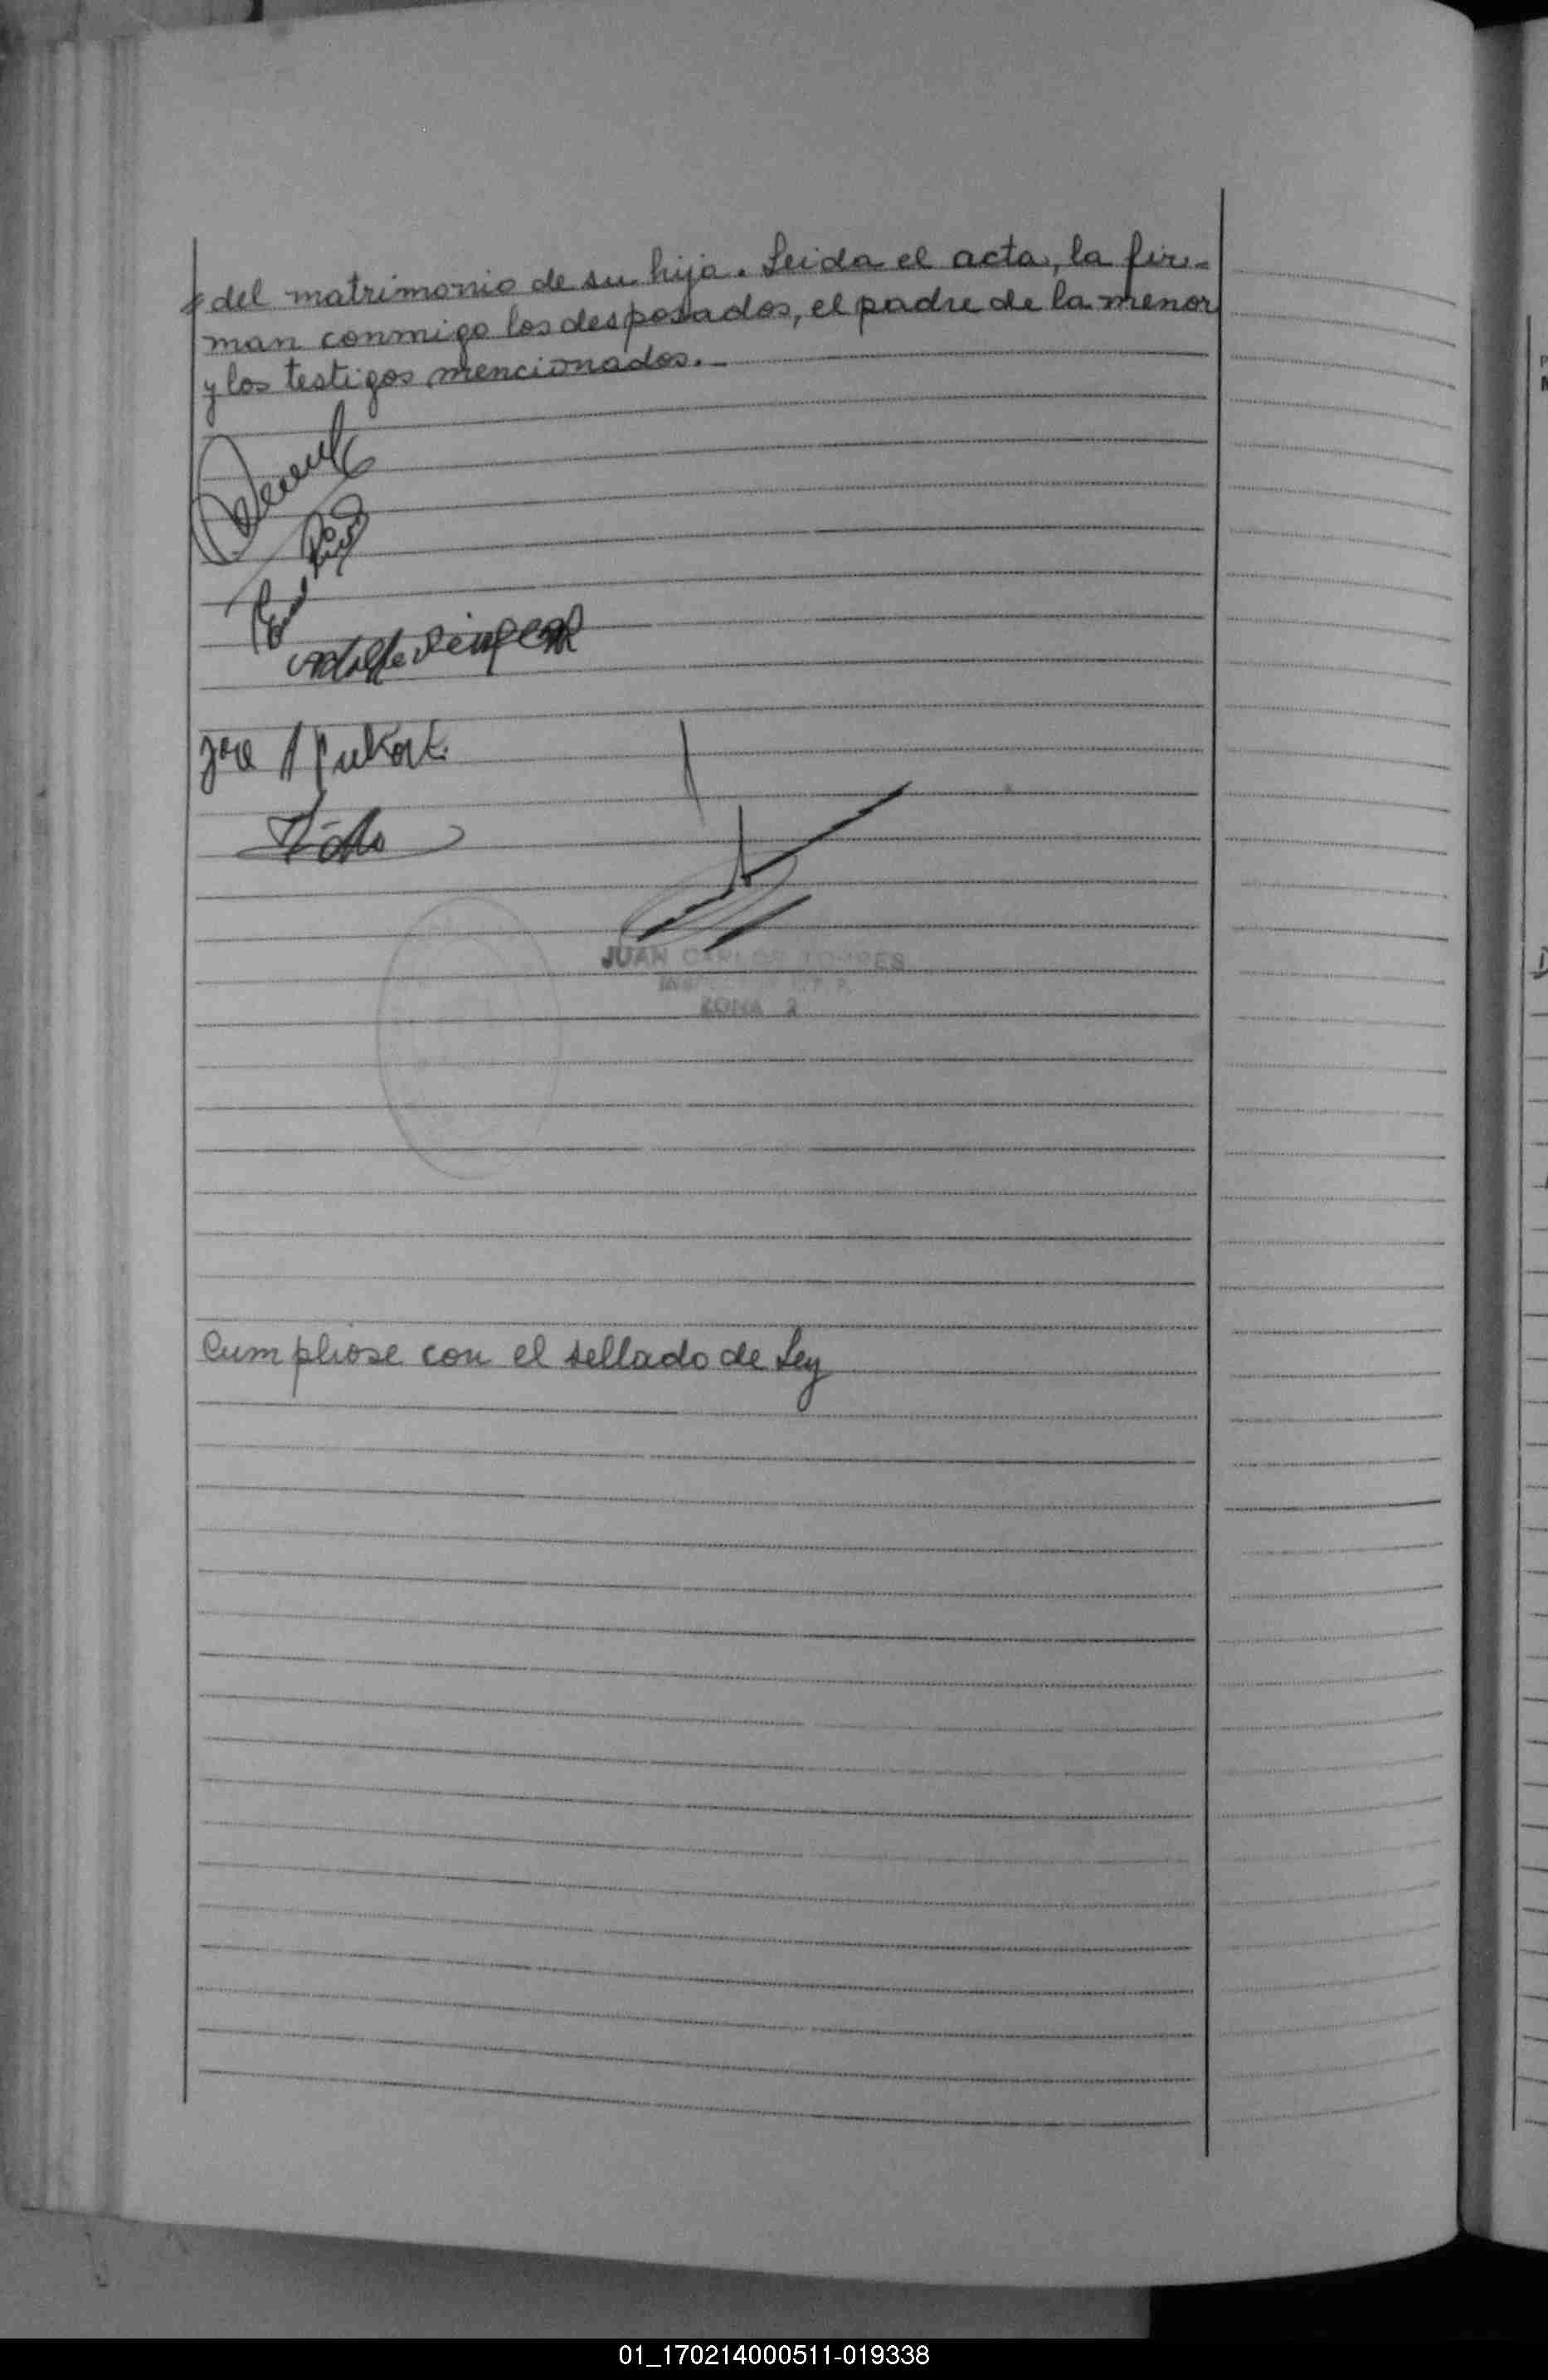 del matrimonio de su hija. Leida el acta, la fir-
man conmigo los desposados, el padre de la menor
y los testigos mencionados.-
José A
JUAN CARLOS TORRES
ZONA 2
Cumpliose con el sellado de Ley
01_170214000511-019338